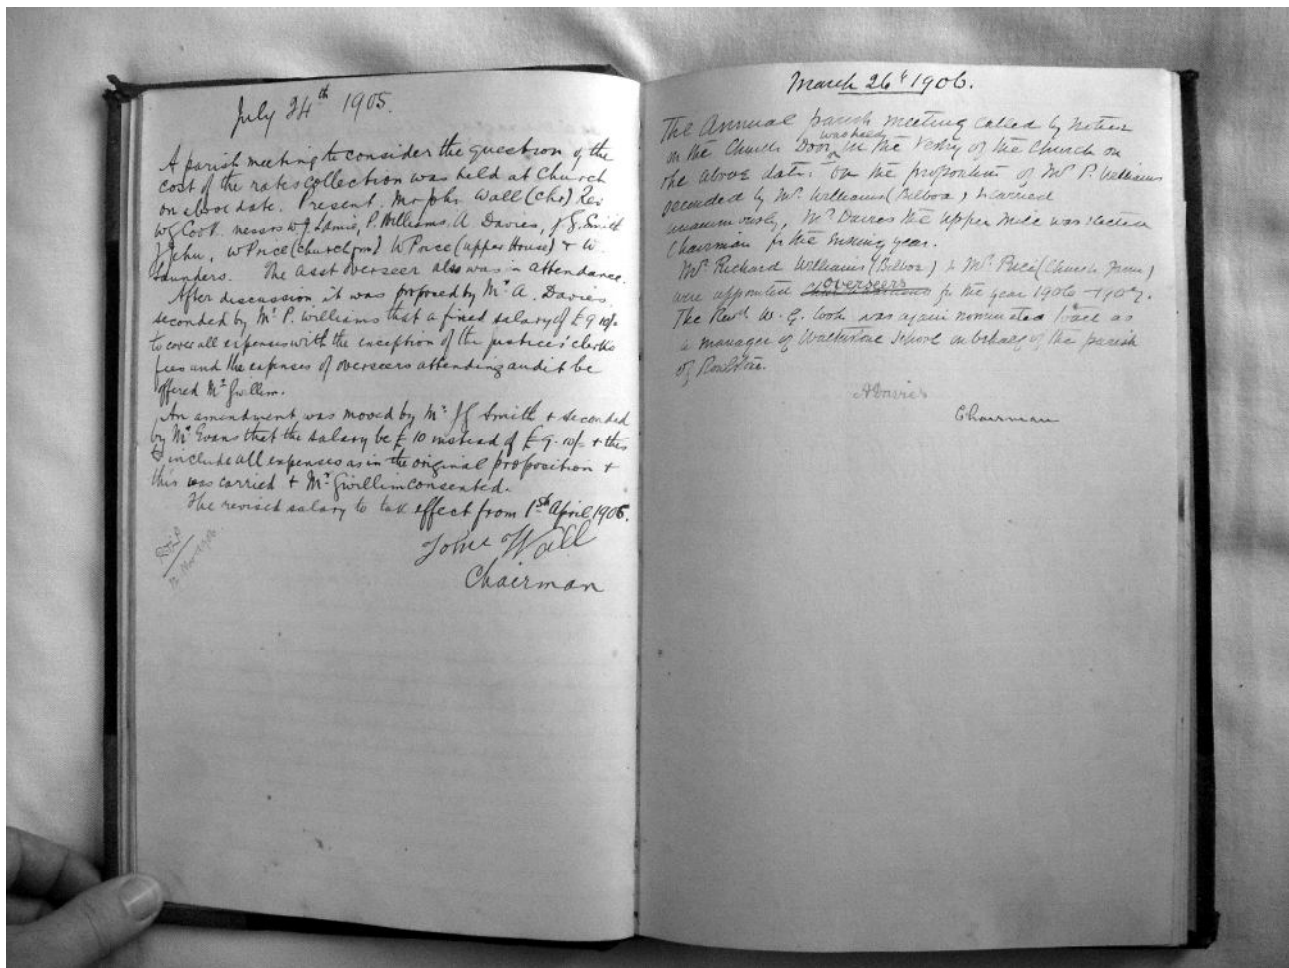 July 24th 1905.
A parish meeting to consider the question of the
cost of the rates collection was held at Church
on above date. Present. Mr John Wall (Chr) Rev
W G Cook. messrs W J Lewis, P. Williams, A Davies, J. G. Smith
J John, W Price (Church fm) W Price (Upper House) + W.
Saunders. The Asst Overseer also was in attendance.
After discussion it was proposed by Mr A. Davies,
seconded by Mr P. Williams that a fixed salary of £9.10/-
to cover all expenses with the exception of the justices' clerks
fees and the expenses of overseers attending audit be
offered Mr Gwillim.
An amendment was moved by Mr J G Smith + seconded
by Mr Evans that the salary be £10 instead of £9.10/- + this
to include all expenses as in the original proposition +
this was carried + Mr Gwillim consented.
The revised salary to take effect from 1st April 1905.
John Wall
Chairman
March 26th 1906.
The Annual parish meeting called by notice
on the Church Door was held in the Vestry of the Church on
the above date. On the proposition of Mr P. Williams
seconded by Mr Williams (Bilboa) & carried
unanimously, Mr Davies the Upper was elected
Chairman for the ensuing year.
Mr Richard Williams (Bilboa) & Mr Price (Church Farm)
were appointed overseers for the year 1906 - 1907.
The Revd W. G. Cook was again nominated to act as
a manager of Walterstone School on behalf of the parish
of Rowlstone.
A Davies
Chairman